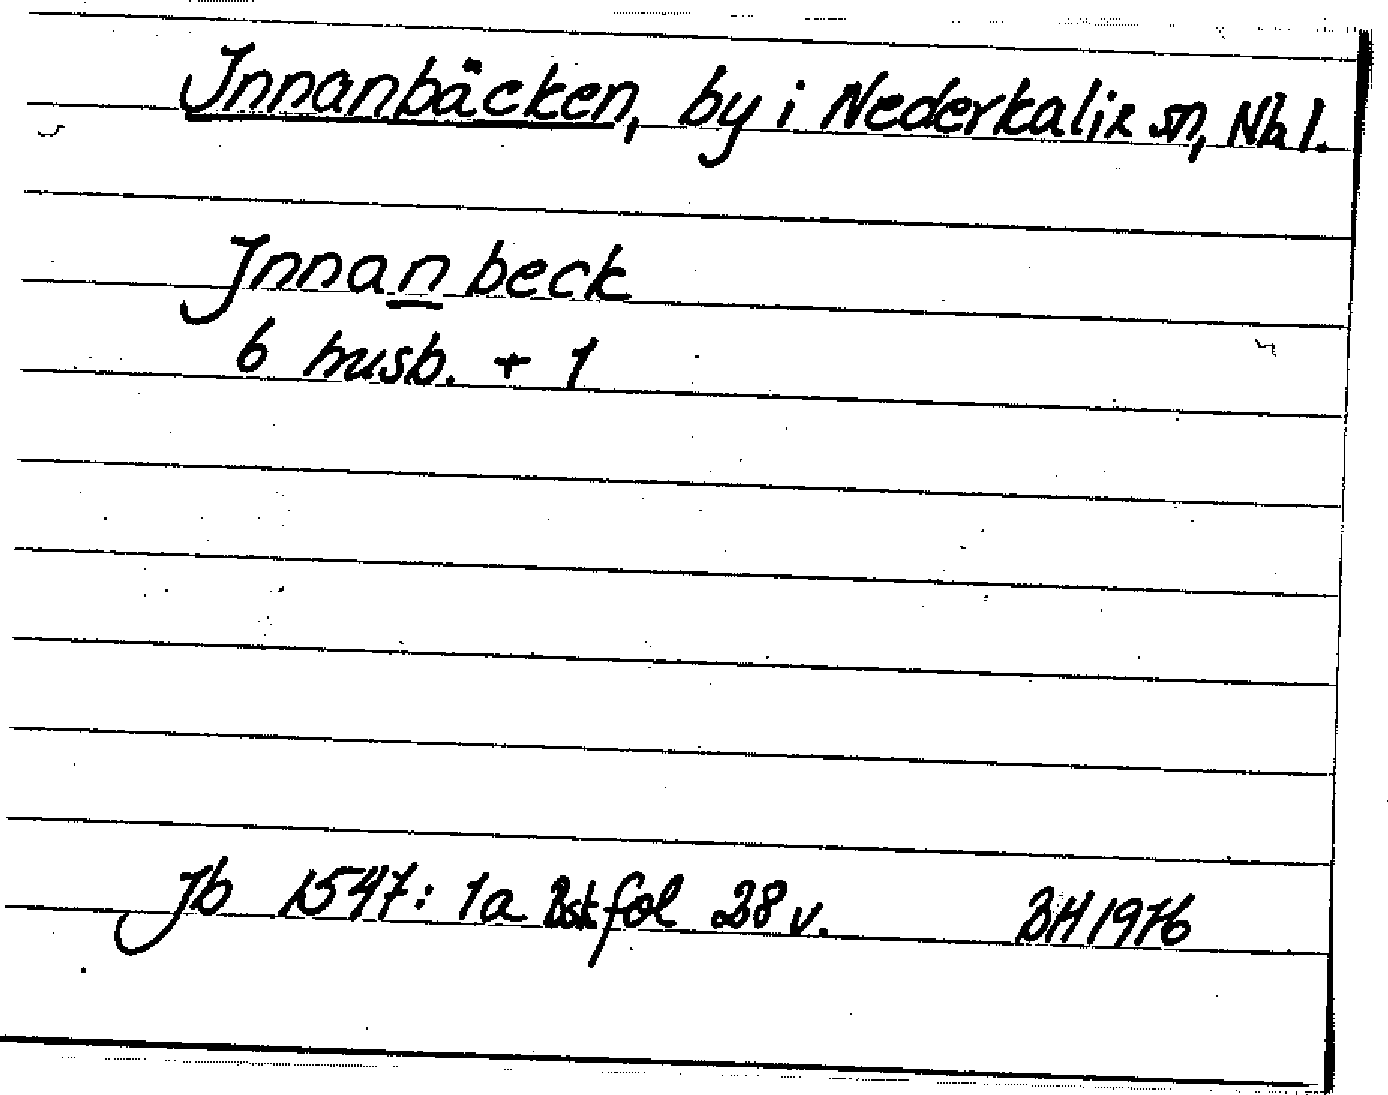 Innanbäcken, by i Nederkalix sn, Nb l.
Innanbeck
6 husb. + 1
Jb 1547: 1a Bsk fol 28 v. BH 1976